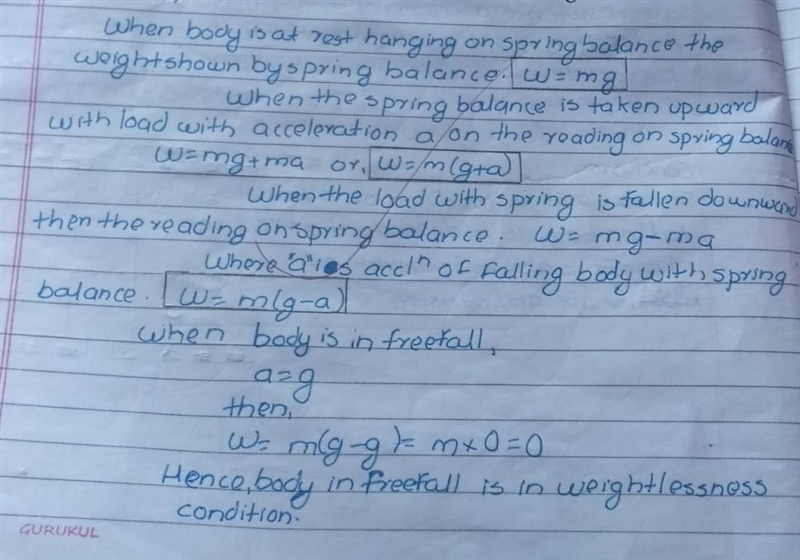 When body is at rest hanging on spring balance the
weight shown by spring balance. W = mg
When the spring balance is taken upward
with load with acceleration a on the reading on spring balance
W=mg+ma or, W=m(g+a)
When the load with spring is fallen downward
then the reading on spring balance. W = mg-ma
Where "a" is accl^n of falling body with spring
balance. W= m(g-a)
When body is in freefall,
a=g
then,
W= m(g-g)= m×0=0
Hence, body in freefall is in weightlessness
condition.
GURUKUL